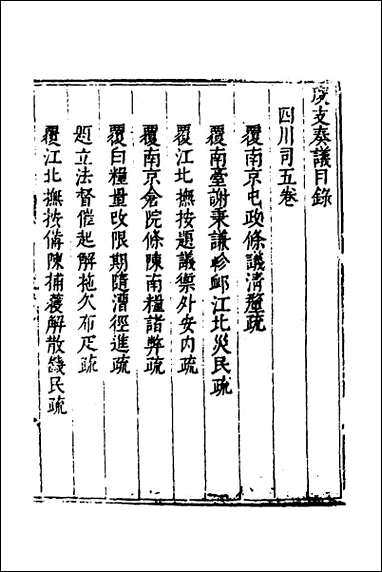 度支奏議目錄
四川司五卷
覆南京屯政條議淸釐疏
覆南臺謝秉謙軫䘏江北災民疏
覆江北撫按題議禦外安內疏
覆南京僉院條陳南糧諸弊疏
覆白糧量改限期隨漕徑進疏
題立法督催起解拖欠布疋疏
覆江北撫按偹陳捕蝗解散饑民疏